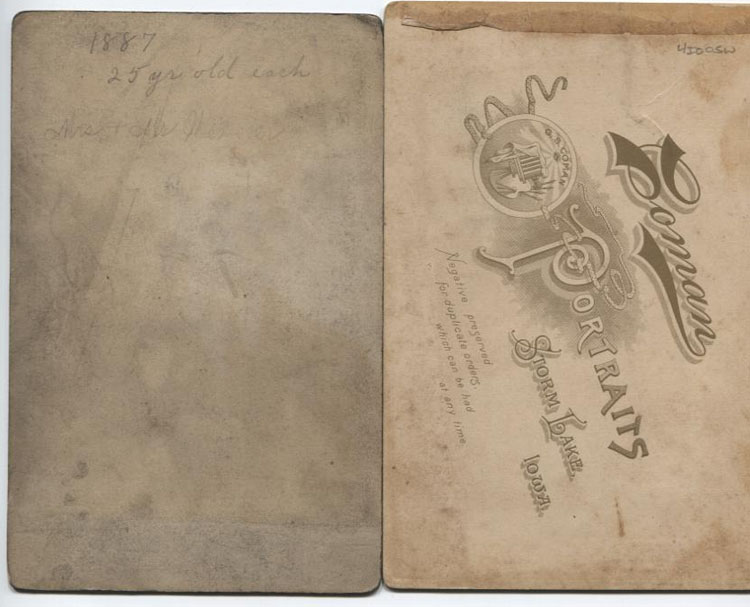 1887
25 yr old each
Mrs
4100SW
G. R. COMAN
Coman
PORTRAITS
STORM LAKE,
IOWA.
Negative preserved
for duplicate orders,
which can be had
at any time